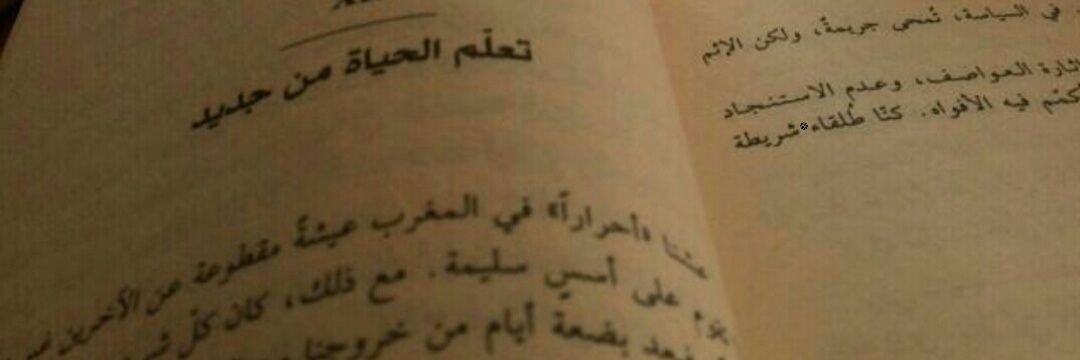 في السياسة، تُمحى جريمةً، ولكن الإثم
إثارة العواصف، وعدم الاستنجاد
تُكتم فيه الأفواه. كنّا طُلقاء شريطة
تعلّم الحياة من جديد
عشنا «أحراراً» في المغرب عيشةً مقطوعة عن الآخرين
على أسسٍ سليمة. مع ذلك، كان كلّ
بضعة أيام من خروجنا